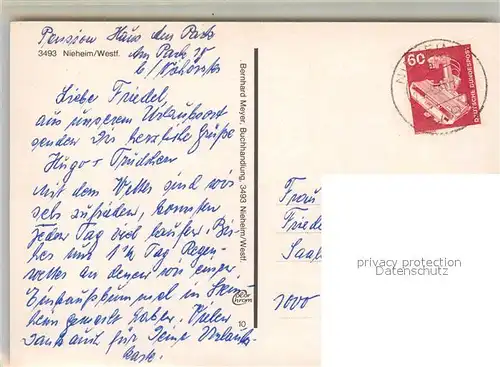 Pension Haus am Park
3493 Nieheim/Westf.
Am Park
b/
Liebe Friedel,
aus unserem Urlaubsort
senden Dir herzliche Grüße
Hugo + Trudchen
Mit dem Wetter sind wir
sehr zufrieden, konnten
jeden Tag viel laufen. Bis-
her nur 1 1/2 Tag Regen-
wetter an denen wir einen
Einkaufsbummel in Stein-
heim gemacht haben. Vielen
Dank auch für Deine Urlaubs-
karte.
Bernhard Meyer, Buchhandlung, 3493 Nieheim/Westf.
10
60
DEUTSCHE BUNDESPOST
Frau
Friede
Saal
privacy protection
Datenschutz